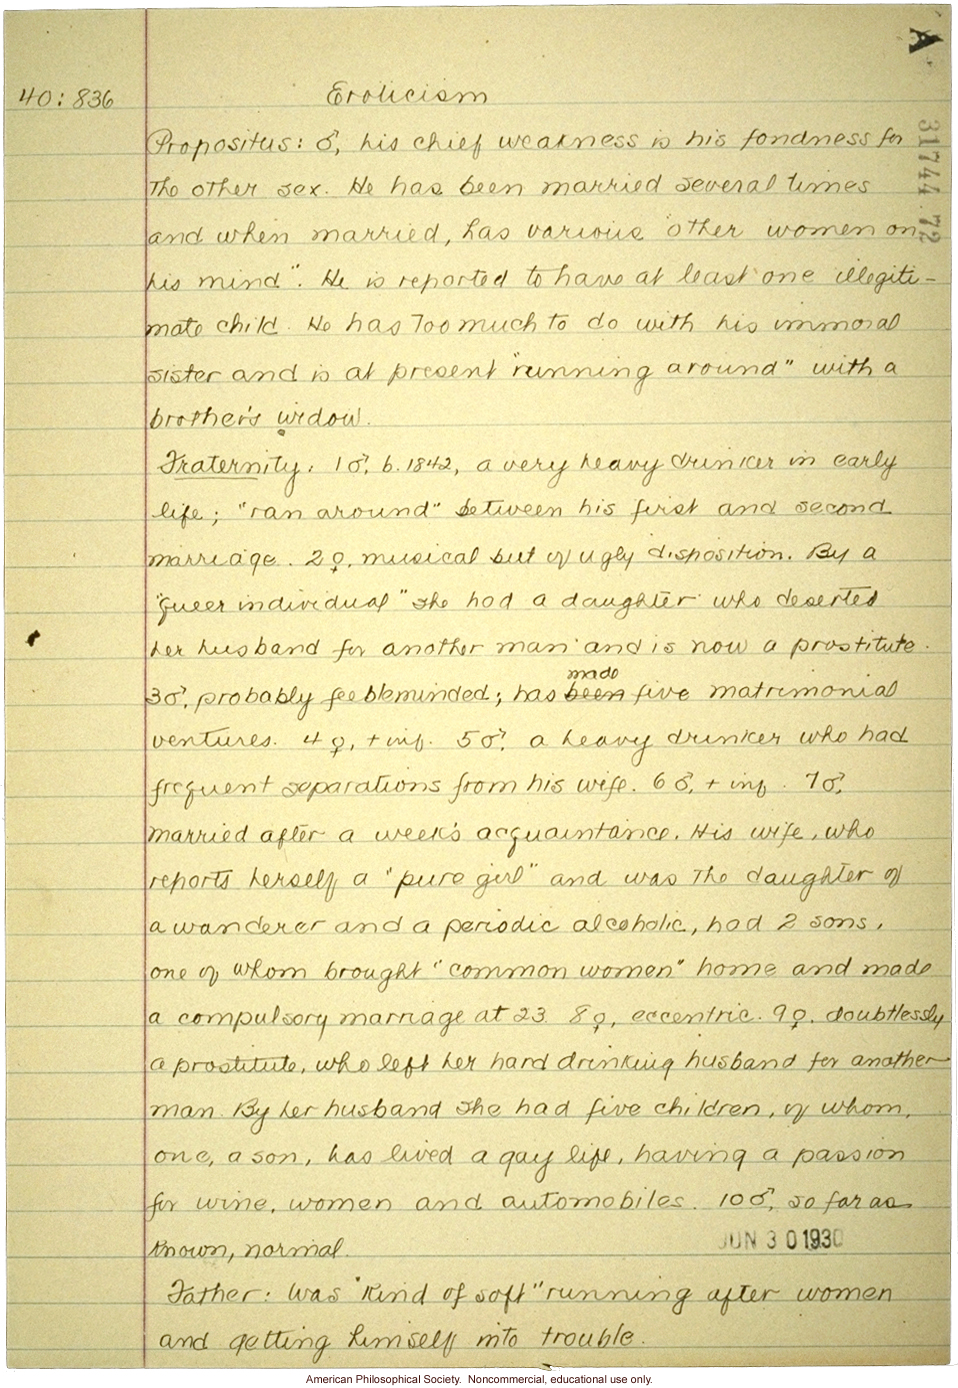 A
40:836 Eroticism
31744.72
Propositus: ♂, his chief weakness is his fondness for
the other sex. He has been married several times
and when married, has various "other women on
his mind". He is reported to have at least one illegiti-
mate child. He has too much to do with his immoral
sister and is at present "running around" with a
brother's widow.
Fraternity: 1♂, b. 1842, a very heavy drinker in early
life; "ran around" between his first and second
marriage. 2♀, musical but of ugly disposition. By a
"queer individual" she had a daughter who deserted
her husband for another man and is now a prostitute.
made
3♂, probably feebleminded; has been five matrimonial
ventures. 4♀, + inf. 5♂, a heavy drinker who had
frequent separations from his wife. 6♂, + inf. 7♂,
married after a week's acquaintance. His wife, who
reports herself a "pure girl" and was the daughter of
a wanderer and a periodic alcoholic, had 2 sons,
one of whom brought "common women" home and made
a compulsory marriage at 23. 8♀, eccentric. 9♀, doubtlessly
a prostitute, who left her hard drinking husband for another
man. By her husband she had five children, of whom,
one, a son, has lived a gay life, having a passion
for wine, women and automobiles. 10♂, so far as
known, normal.
JUN 30 1930
Father: Was "kind of soft" running after women
and getting himself into trouble.
American Philosophical Society. Noncommercial, educational use only.